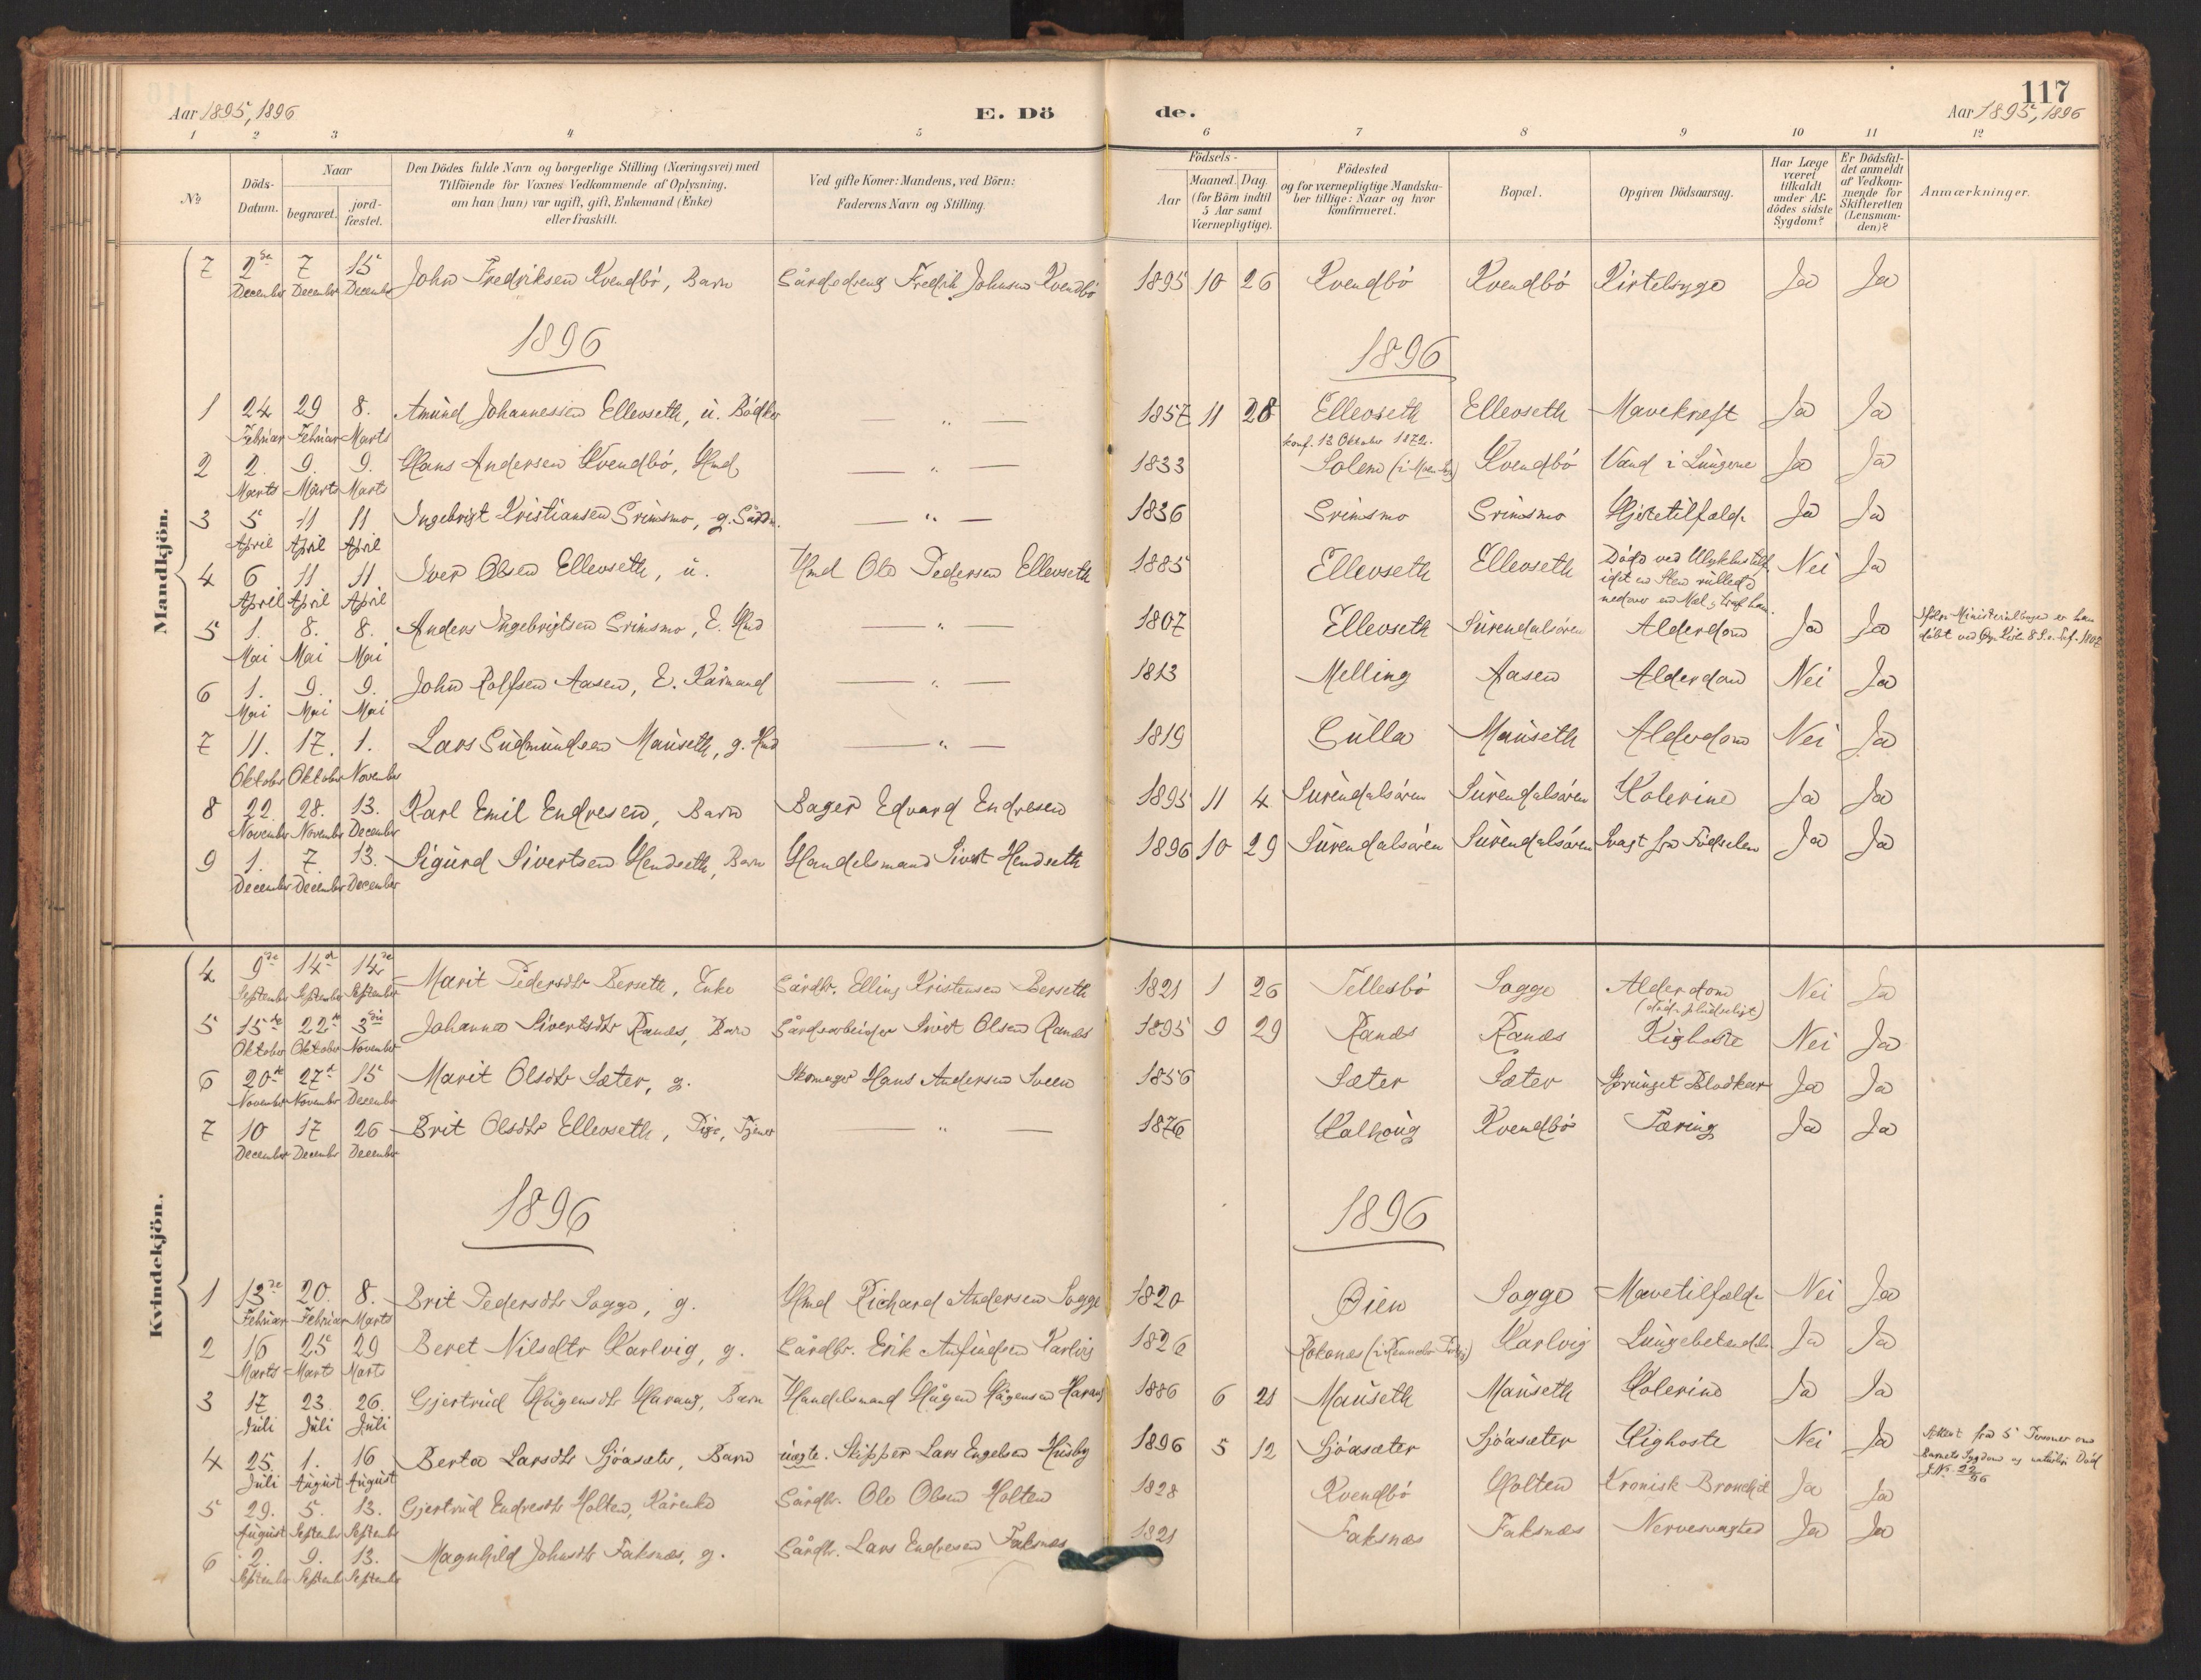 117
Aar 1895, 1896
E. Dö
de.
Aar 1895, 1896
1 2 3 4 5 6 7 8 9 10 11 12
No
Döds-Datum.
Naar
begravet.
jord-fæstet.
Den Dödes fulde Navn og borgerlige Stilling (Næringsvei) med
Tilföiende for Voxnes Vedkommende af Oplysning,
om han (hun) var ugift, gift, Enkemand (Enke)
eller fraskilt.
Ved gifte Koner: Mandens, ved Börn:
Faderens Navn og Stilling.
Födsels-
Aar
Maaned. Dag.
(for Börn indtil
5 Aar samt
Værnepligtige).
Födested
og for værnepligtige Mandska-
ber tillige: Naar og hvor
konfirmeret.
Bopæl.
Opgiven Dödsaarsag.
Har Læge
været
tilkaldt
under Af-
dödes sidste
Sygdom?
Er Dödsfal-
det anmeldt
af Vedkom-
mende for
Skifteretten
(Lensman-
den)?
Anmærkninger.
Mandkjön.
7 2de 7 15 John Fredriksen Kvendbö, Barn Gårdedreng Fredrik Johnsen Kvendbö 1895 10 26 Kvendbö Kvendbö Kirtelsyge Ja Ja
December December December
1896 1896
1 24 29 8. Amund Johannessen Ellevseth, u. Bödker — „ — 1857 11 28 Ellevseth Ellevseth Mavekræft Ja Ja
Februar Februar Marts konf. 13 Oktober 1872.
2 2. 9. 9. Hans Andersen Kvendbö, Hmd — „ — 1833 Solem Kvendbö Vand i Lungerne Ja Ja
Marts Marts Marts
3 5. 11 11. Ingebrigt Kristiansen Grimsmo, g. Gårdm. — „ — 1836 Grimsmo Grimsmo Hjertetilfælde Ja Ja
April April April
4 6 11 11. Iver Olsen Ellevseth, u. Hmd Ole Pedersen Ellevseth 1885 Ellevseth Ellevseth Döde ved Ulykkestilf. Nei Ja
April April April idet en Sten rullede
nedover en Mæl, traf ham.
5 1. 8. 8. Anders Ingebrigtsen Grimsmo, E. Hmd — „ — 1807 Ellevseth Surendalsören Alderdom Ja Ja Ifölge Ministerialbogen er han
Mai Mai Mai döbt ved
6 1. 9. 9. John Rolfsen Aasen, E. Kårmand — „ — 1813 Melling Aasen Alderdom Nei Ja
Mai Mai Mai
7 11. 17. 1. Lars Gudmundsen Mauseth, g. Hmd — „ — 1819 Gulla Mauseth Alderdom Nei Ja
Oktober Oktober November
8 22. 28. 13. Karl Emil Endresen, Barn Bager Edvard Endresen 1895 11 4 Surendalsören Surendalsören Kolerine Ja Ja
November November December
9 1. 7 13. Sigurd Sivertsen Hendseth, Barn Handelsmand Sivert Hendseth 1896 10 29 Surendalsören Surendalsören Svagt fra Födselen Ja Ja
December December December
Kvindekjön.
4 9de 14de 14de Marit Pedersdtr Berseth, Enke Gårdbr. Elling Kristensen Berseth 1821 1 26 Tellesbö Sogge Alderdom Nei Ja
September September September (döde pludseligt)
5 15de 22de 3die Johanna Sivertsdtr Randes, Barn Gårdearbeider Sivert Olsen Randes 1895 9 29 Randes Randes Kighoste Nei Ja
Oktober Oktober November
6 20de 27de 15 Marit Olsdtr Sæter, g. Skomager Hans Andersen Sveen 1856 Sæter Sæter Sprunget Blodkar Ja Ja
November November December
7 10 17 26 Brit Olsdtr Ellevseth, Pige, Tjener — „ — 1876 Kalhoug Kvendbö Tæring Ja Ja
December December December
1896 1896
1 13de 20. 8. Brit Pedersdtr Sogge, g. Hmd Richard Andersen Sogge 1820 Öien Sogge Mavetilfælde Nei Ja
Februar Februar Marts
2 16 25 29 Beret Nilsdtr Karlvig, g. Gårdbr. Erik Anfindsen Karlvig 1826 Rokonæs Karlvig Lungebetændelse Ja Ja
Marts Marts Marts
3 17 23. 26. Gjertrud Hågensdtr Harang, Barn Handelsmand Hågen Hågensen Harang 1886 6 21 Mauseth Mauseth Kolerine Ja Ja
Juli Juli Juli
4 25. 1. 16 Berta Larsdtr Sjöasæter, Barn uægte. Skipper Lars Engelsen Husby 1896 5 12 Sjöasæter Sjöasæter Kighoste Nei Ja Attest fra 5 Personer om
Juli August August Barnets Sygdom og naturlige Död
J.N. 22/96
5 29. 5. 13. Gjertrud Endresdtr Holten, Kårenke Gårdbr. Ole Olsen Holten 1828 Kvendbö Holten Kronisk Bronchit Ja Ja
August September September
6 2. 9. 13. Magnhild Johnsdtr Faksnæs, g. Gårdbr. Lars Endresen Faksnæs 1821 Faksnæs Faksnæs Nervesvaghed Ja Ja
September September September